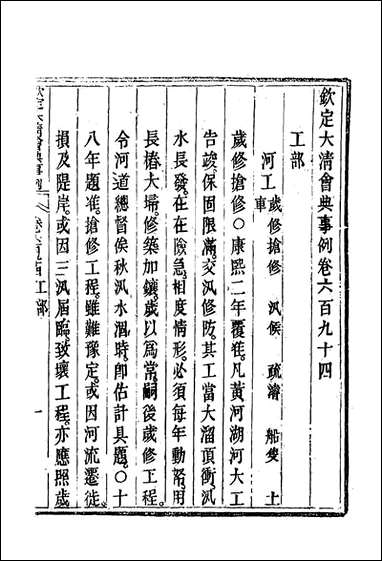 欽定大清會典事例卷六百九十四
工部
河工 歲修搶修 汛候 疏濬 船隻 土車
歲修搶修○康熙二年覆准。凡黃河湖河大工
告竣。保固限滿。交汛修防。其工當大溜頂衝。汛
水長發。在在險急。相度情形。必須每年動帑。用
長樁大埽。修築加鑲。歲以為常。嗣後歲修工程。
令河道總督俟秋汛水涸時。卽估計具題。○十
八年題准。搶修工程。雖難豫定。或因河流遷徙。
損及隄岸。或因三汛屆臨。致壞工程。亦應照歲
欽定大清會典事例 卷六百九十四 工部 一